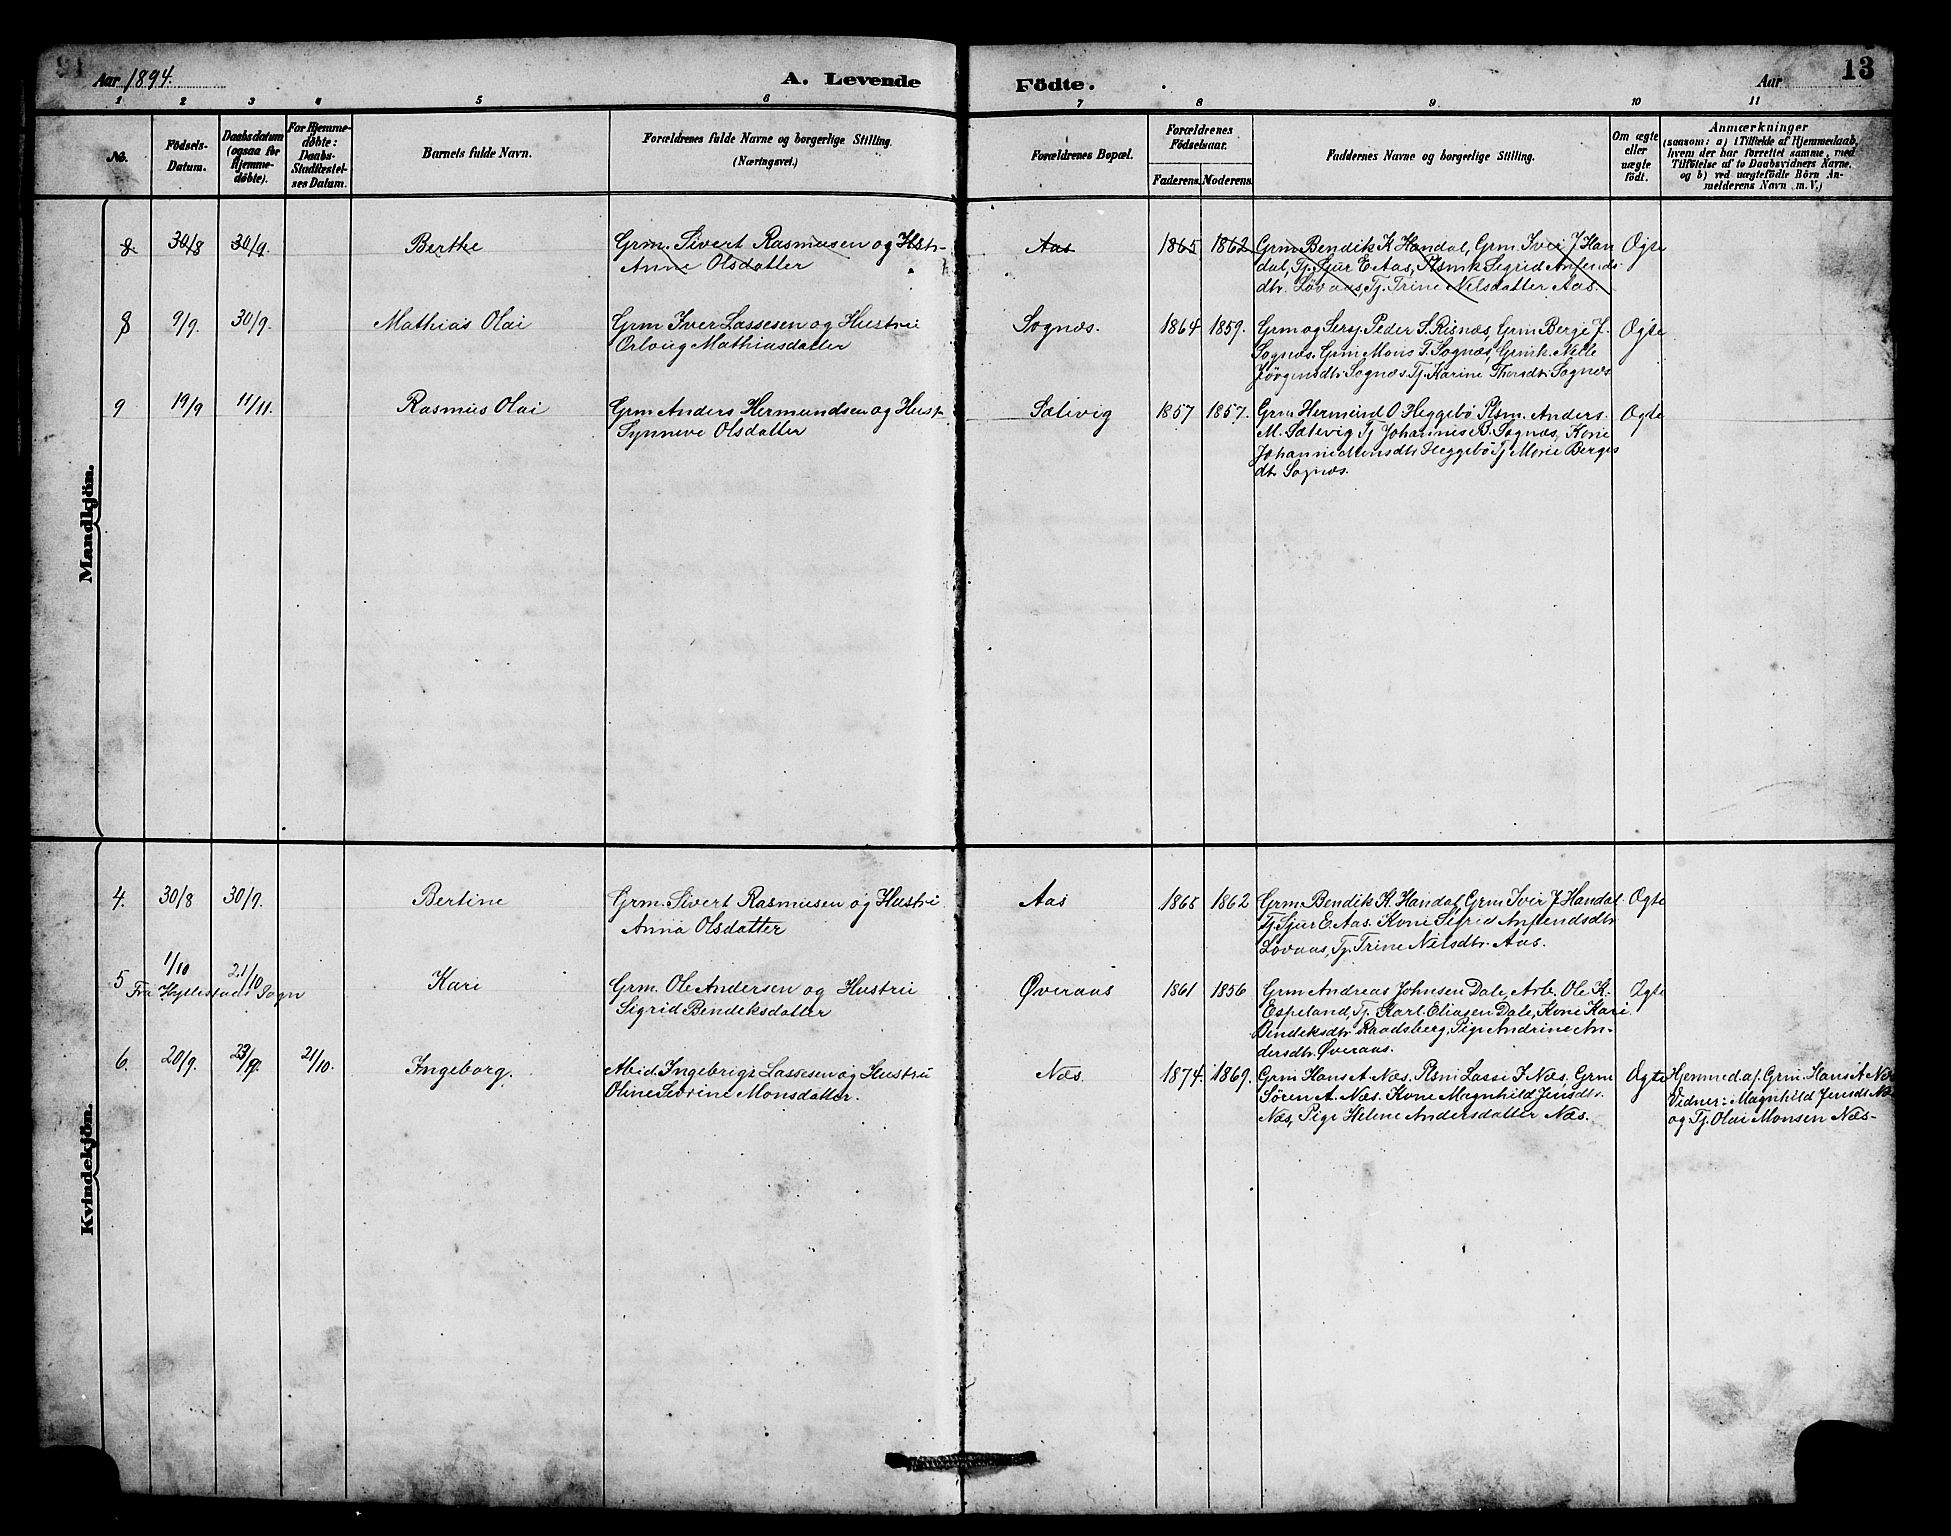 Aar 1894.
A. Levende Födte.
Aar
13
1 2 3 4 5 6 7 8 9. 10 11
No.
Födsels-
Datum.
Daabsdatum
(ogsaa for
Hjemme-
døbte).
For Hjemme-
døbte:
Daabs-
Stadfæstel-
ses Datum.
Barnets fulde Navn.
Forældrenes fulde Navne og borgerlige Stilling.
(Næringsvei.)
Forældrenes Bopæl.
Forældrenes
Födselsaar.
Faderens. Moderens.
Faddernes Navne og borgerlige Stilling.
Om ægte
eller
uægte
født.
Anmærkninger
(saasom: a) i Tilfælde af Hjemmedaab,
hvem der har forrettet samme, med
Tilföielse af to Daabsvidners Navne,
og b) ved uægtefödte Börn An-
melderens Navn m. V.)
Mandkjön.
8 30/8 30/9. Berthe Grm. Sivert Rasmusen og Hstr- Aas 1865 1862 Grm. Bendik K Handal, Grm. Iver J. Han Ægte
Anne Olsdatter dal, Tj. Sjur E Aas, Plsmk Sigrid Anfinds
dtr. Lövaas Tj. Trine Nilsdatter Aas.
8 9/9. 30/9. Mathias Olai Grm Iver Lassesen og Hustru Sognæs. 1864 1859. Grm og Sersj. Peder S. Risnæs, Grm Berge J. Ægte
Orloug Mathiasdatter Sognæs. Grm Mons T. Sognæs, Grmk. Nille
Jörgensdtr Sognæs Tj. Karine Thorsdtr. Sognæs
9 19/9 11/11. Rasmus Olai Grm Anders Hermundsen og Hust. Sætevig 1857 1857. Grm Hermund O Heggebö Plsm. Anders. Ægte
Synneve Olsdatter M. Sætevig Tj Johannes B. Sognæs, Kone
Johanne Monsdtr Heggebö Tj Marie Berges
dtr Sognæs.
Kvindekjön.
4. 30/8 30/9. Bertine Grm. Sivert Rasmusen og Hustru Aas 1865 1862 Grm. Bendik K. Handal, Grm Iver J Handal. Ægte
Anna Olsdatter Tj. Sjur E. Aas. Kone Sigrid Anfendsdtr.
Lövaas, Tj. Trine Nilsdtr. Aas.
5 1/10 21/10 Kari Grm. Ole Andersen og Hustru Øveraas 1861 1856 Grm Andreas Johnsen Dale, Arb. Ole K. Ægte
Fra Hyllestads Sogn Sigrid Bendeksdatter Espeland, Tj. Karl Eliasen Dale, Kone Kari
Bendeksdtr Raadsberg, Pige Andrine An-
dersdtr. Øveraas.
6. 20/9. 23/9. 21/10. Ingeborg. Abid. Ingebrigt Lassesen og Hustru Næs. 1874. 1869. Grm Hans A. Næs. Plsm Lasse I Næs, Grm Ægte Hjemmed. af Grm. Hans A Næs
Oline Sevrine Monsdatter. Sören A. Næs. Kone Magnhild Jensdtr. Vidner: Magnhild Jensdtr Næs
Næs, Pige Helene Andersdatter Næs. og Tj. Olai Monsen Næs-